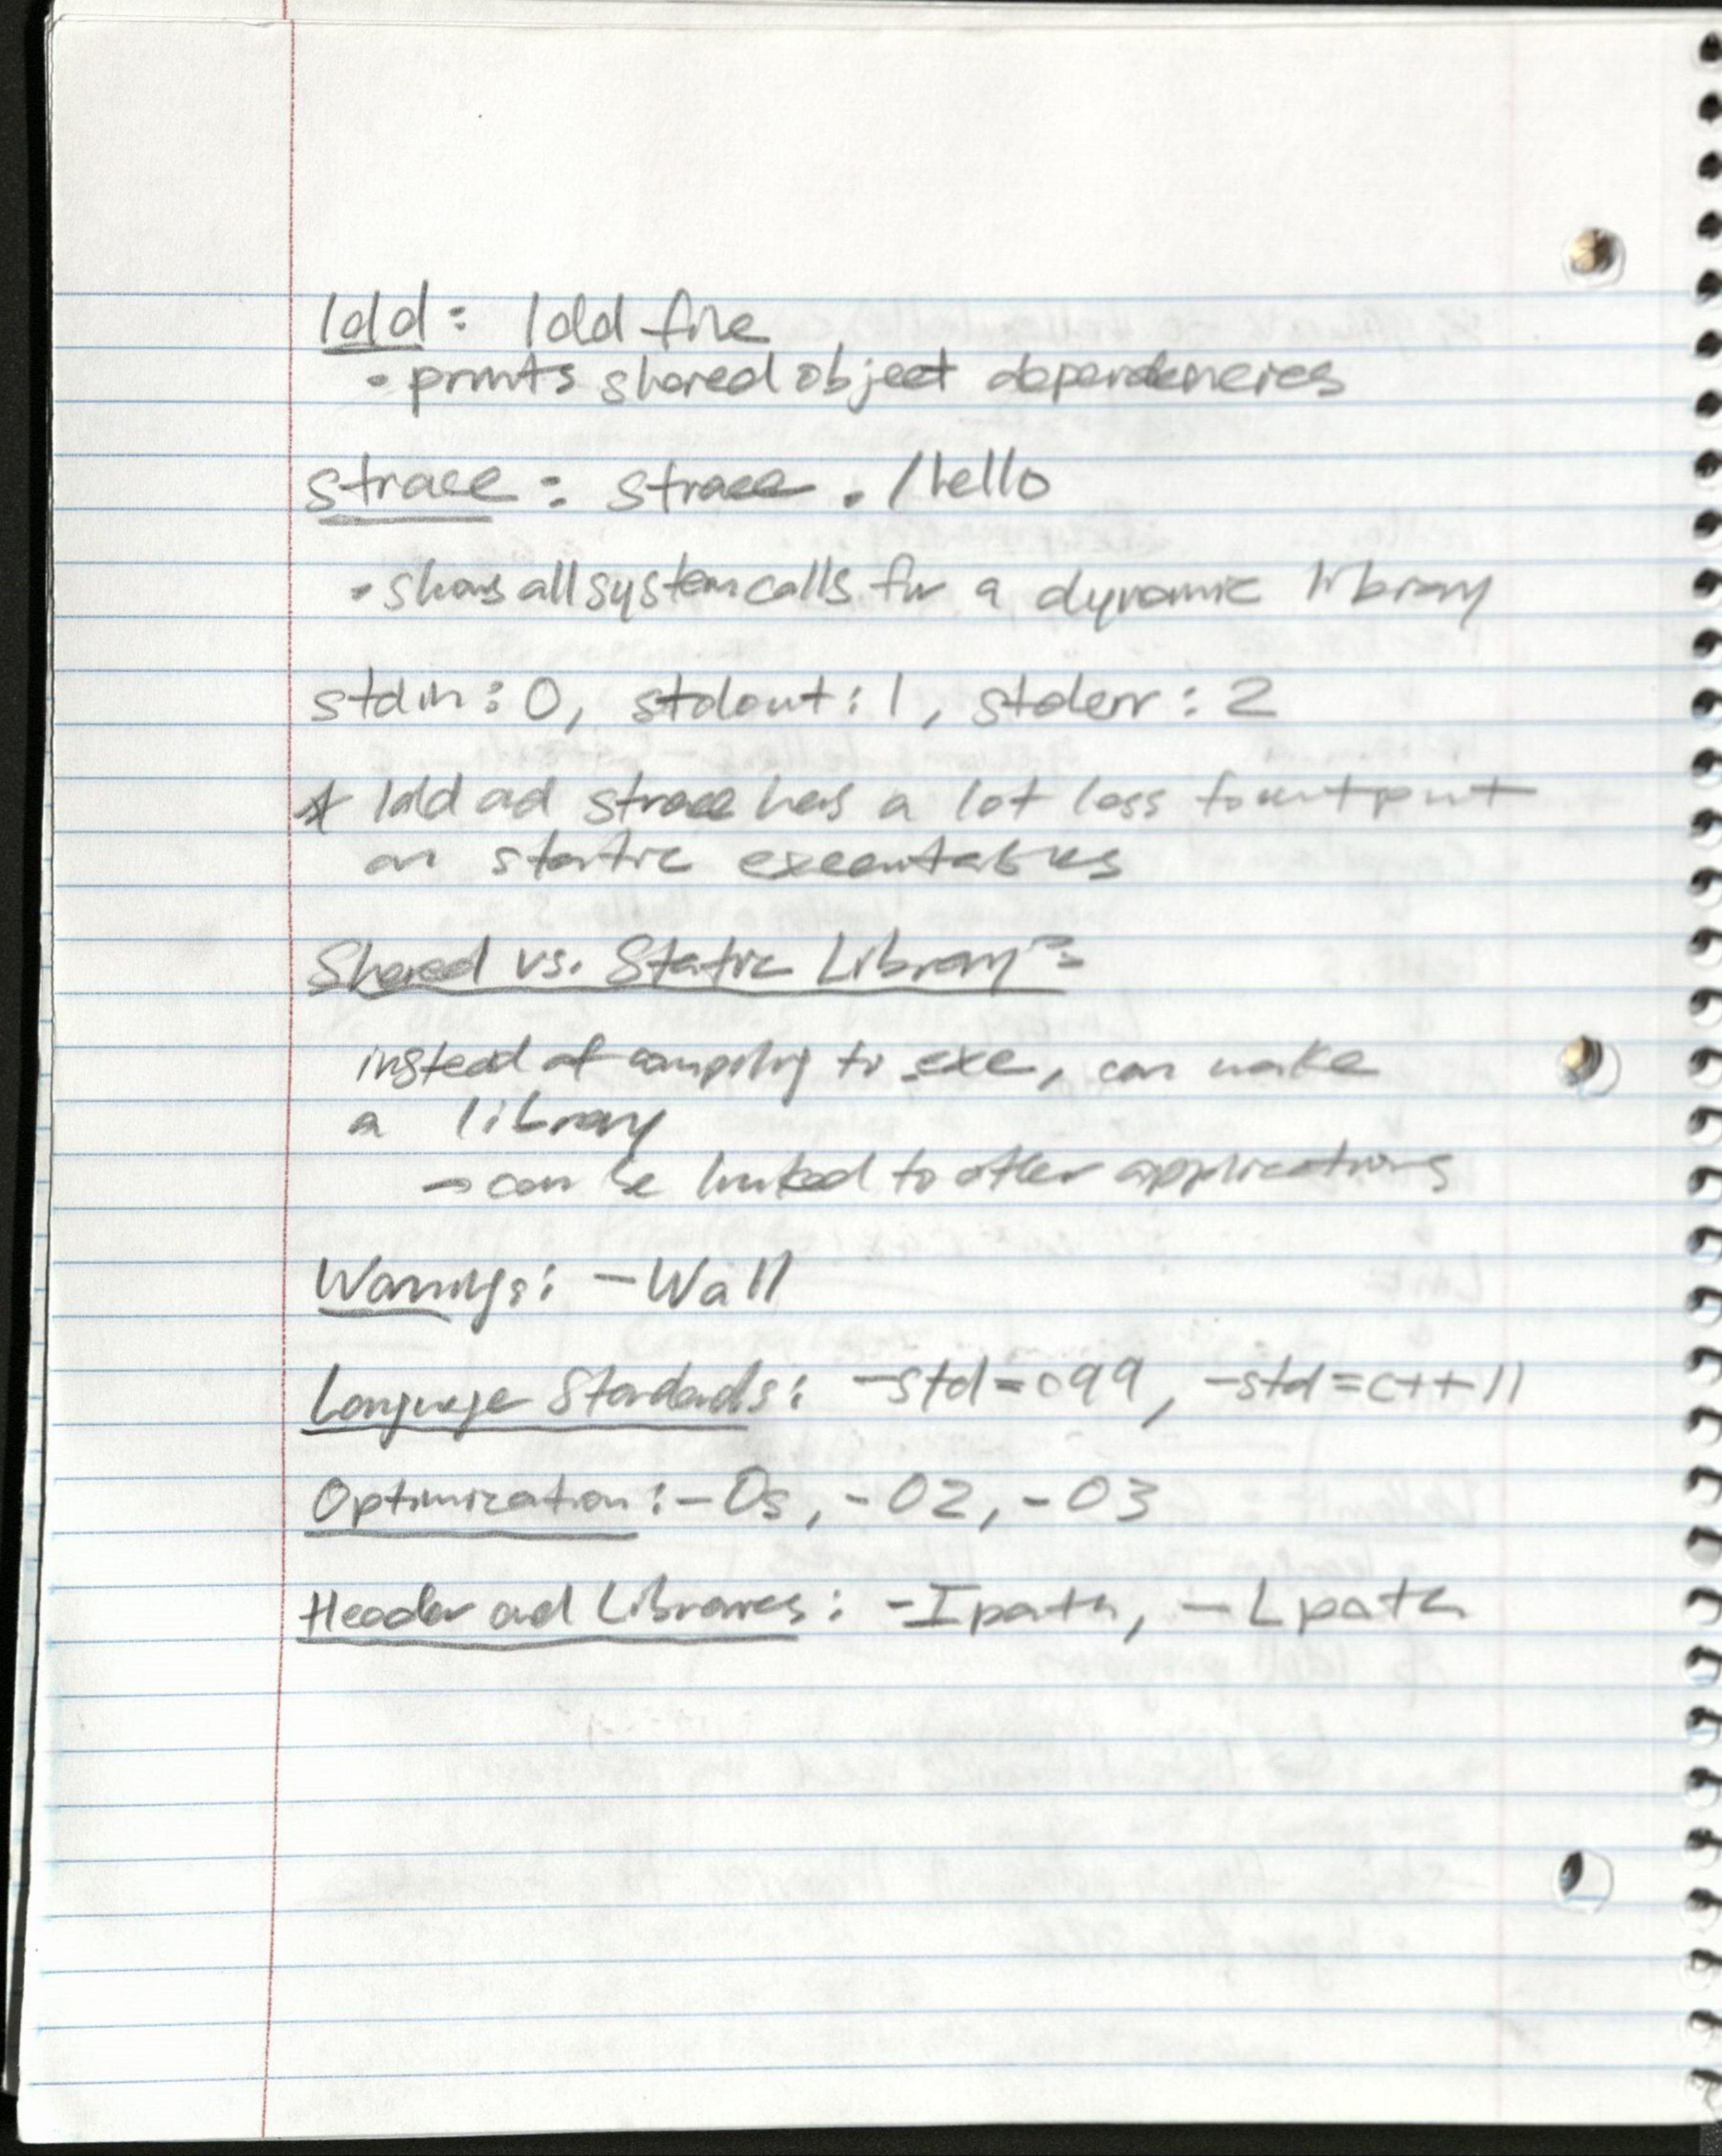 ldd: ldd file
• prints shared object dependencies
strace: strace ./hello
• shows all system calls for a dynamic library
stdin: 0, stdout: 1, stderr: 2
* ldd ad strace has a lot less to output
on static executables
Shared vs. Static Library:
instead of compiling to .exe, can make
a library
→ can be linked to other applications
Warnings: -Wall
Language Standards: -std=c99, -std=c++11
Optimization: -Os, -O2, -O3
Header and Libraries: -Ipath, -Lpath